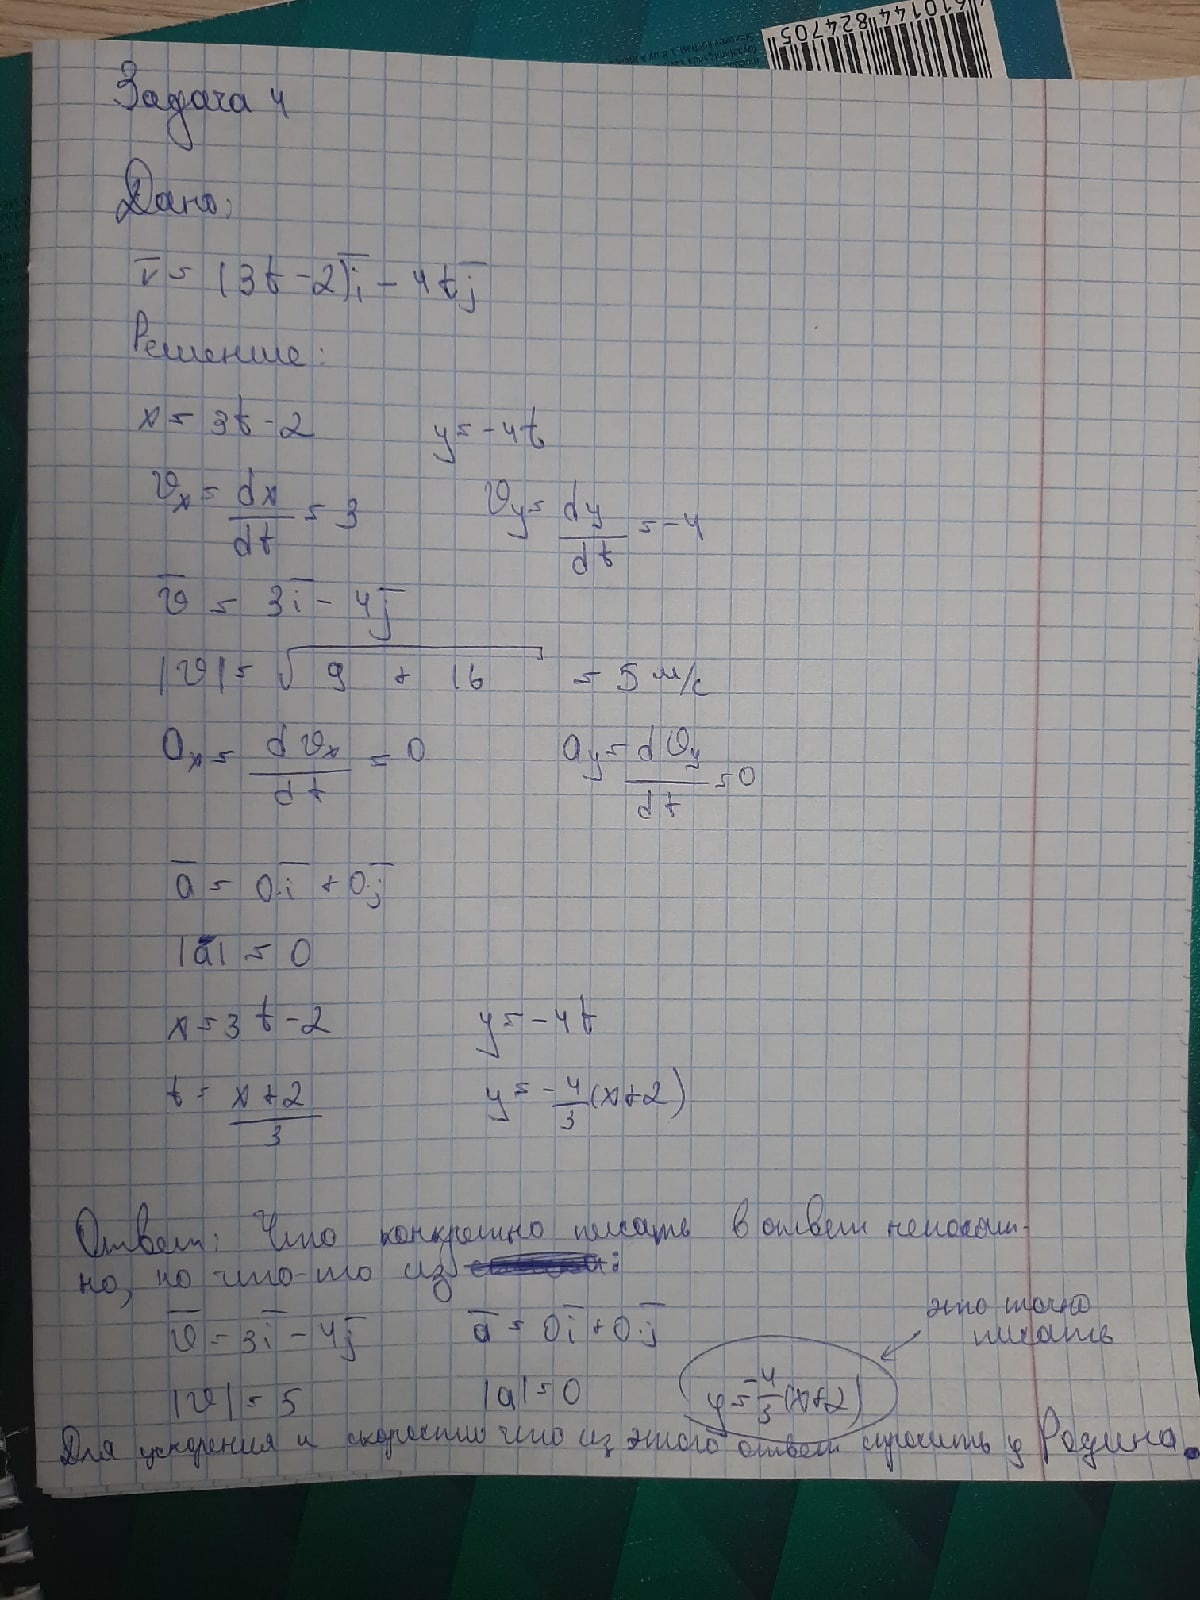 610144 824705
Задача 4
Дано:
r̅ = (3t - 2)i̅ - 4tj̅
Решение:
x = 3t - 2    y = -4t
υx = dx/dt = 3    υy = dy/dt = -4
υ̅ = 3i̅ - 4j̅
|υ| = √(9 + 16) = 5 м/с
ax = dυx/dt = 0    ay = dυy/dt = 0
a̅ = 0·i̅ + 0·j̅
|a̅| = 0
x = 3t - 2    y = -4t
t = (x + 2)/3    y = -4/3(x + 2)
Ответ: Что конкретно писать в ответ непонят-
но, но что-то из :
это точно
писать
υ̅ = 3i̅ - 4j̅    a̅ = 0i̅ + 0·j̅
|υ| = 5    |a| = 0    y = -4/3(x + 2)
Для ускорения и скорости что из этого ответ спросить у Родина.